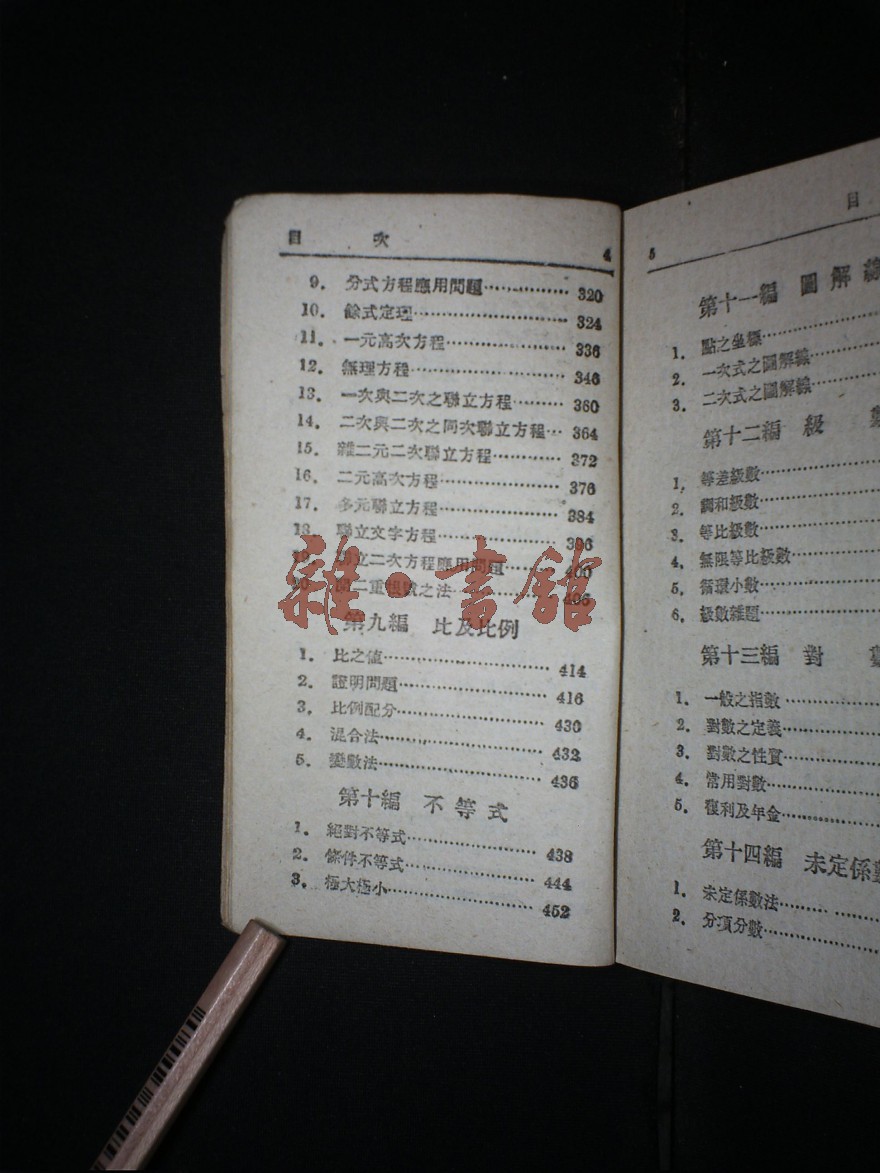 目 次 4
9. 分式方程應用問題…………… 320
10. 餘式定理……………………… 324
11. 一元高次方程………………… 336
12. 無理方程……………………… 346
13. 一次與二次之聯立方程……… 360
14. 二次與二次之同次聯立方程… 364
15. 雜二元二次聯立方程………… 372
16. 二元高次方程………………… 376
17. 多元聯立方程………………… 384
18. 聯立文字方程…………………
立二次方程應用問題…… 400
二重根號之法…………… 406
第九編 比及比例
1. 比之値………………………… 414
2. 證明問題……………………… 416
3. 比例配分……………………… 430
4. 混合法………………………… 432
5. 變數法………………………… 436
第十編 不等式
1. 絕對不等式…………………… 438
2. 條件不等式…………………… 444
3. 極大極小……………………… 452
雜·書館
5 目
第十一編 圖解線
1. 點之坐標………………
2. 一次式之圖解線………
3. 二次式之圖解線………
第十二編 級
1. 等差級數………………
2. 調和級數………………
3. 等比級數………………
4. 無限等比級數…………
5. 循環小數………………
6. 級數雜題………………
第十三編 對
1. 一般之指數……………
2. 對數之定義……………
3. 對數之性質……………
4. 常用對數………………
5. 複利及年金……………
第十四編 未定係數
1. 未定係數法……………
2. 分項分數………………